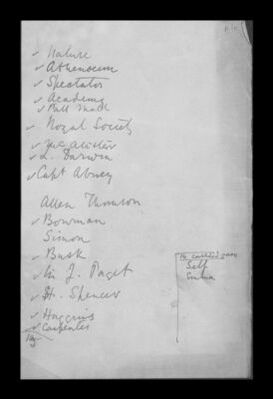 ✓ Nature
✓ Athenaeum
✓ Spectator
✓ Academy
✓ Pall Mall
✓ Royal Society
✓ McAlister
✓ L. Darwin
✓ Capt Abney
Allen Thomson
✓ Bowman
Simon
✓ Busk
✓ Sir J. Paget
✓ H. Spencer
✓ Huggins
✓ Carpenter
Self